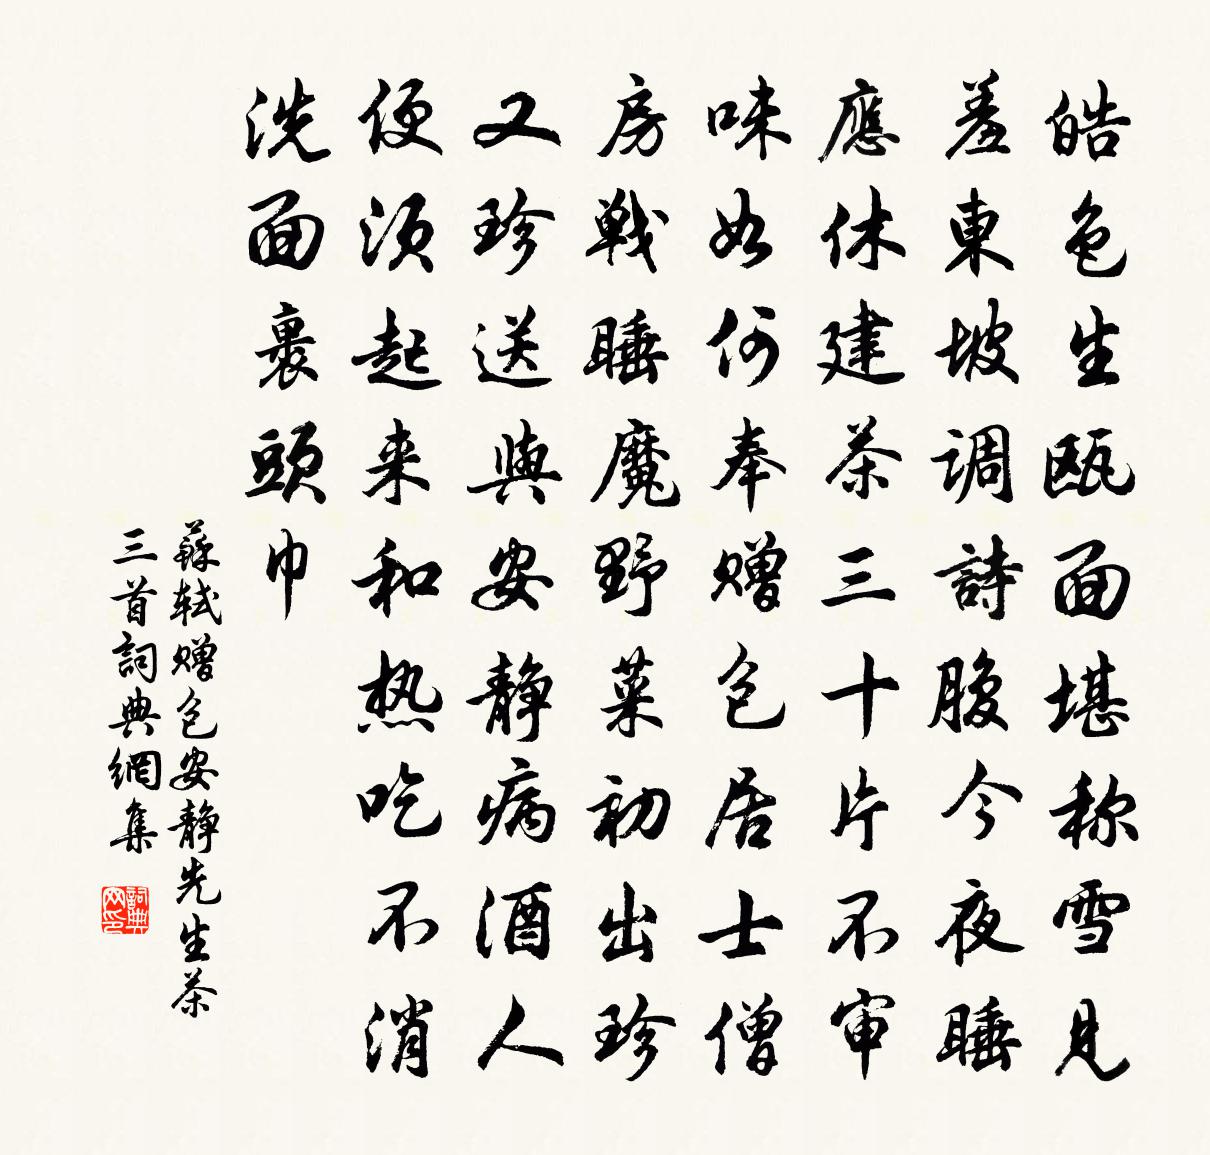 皓色生瓯面堪称雪見
羞東坡調詩腹今夜睡
應休建茶三十片不审
味如何奉赠包居士僧
房戰睡魔野菜初出珍
又珍送與安静病酒人
便须起来和热吃不消
洗面裹頭巾
蘇軾赠包安静先生茶
三首詞典網集
詞典网印